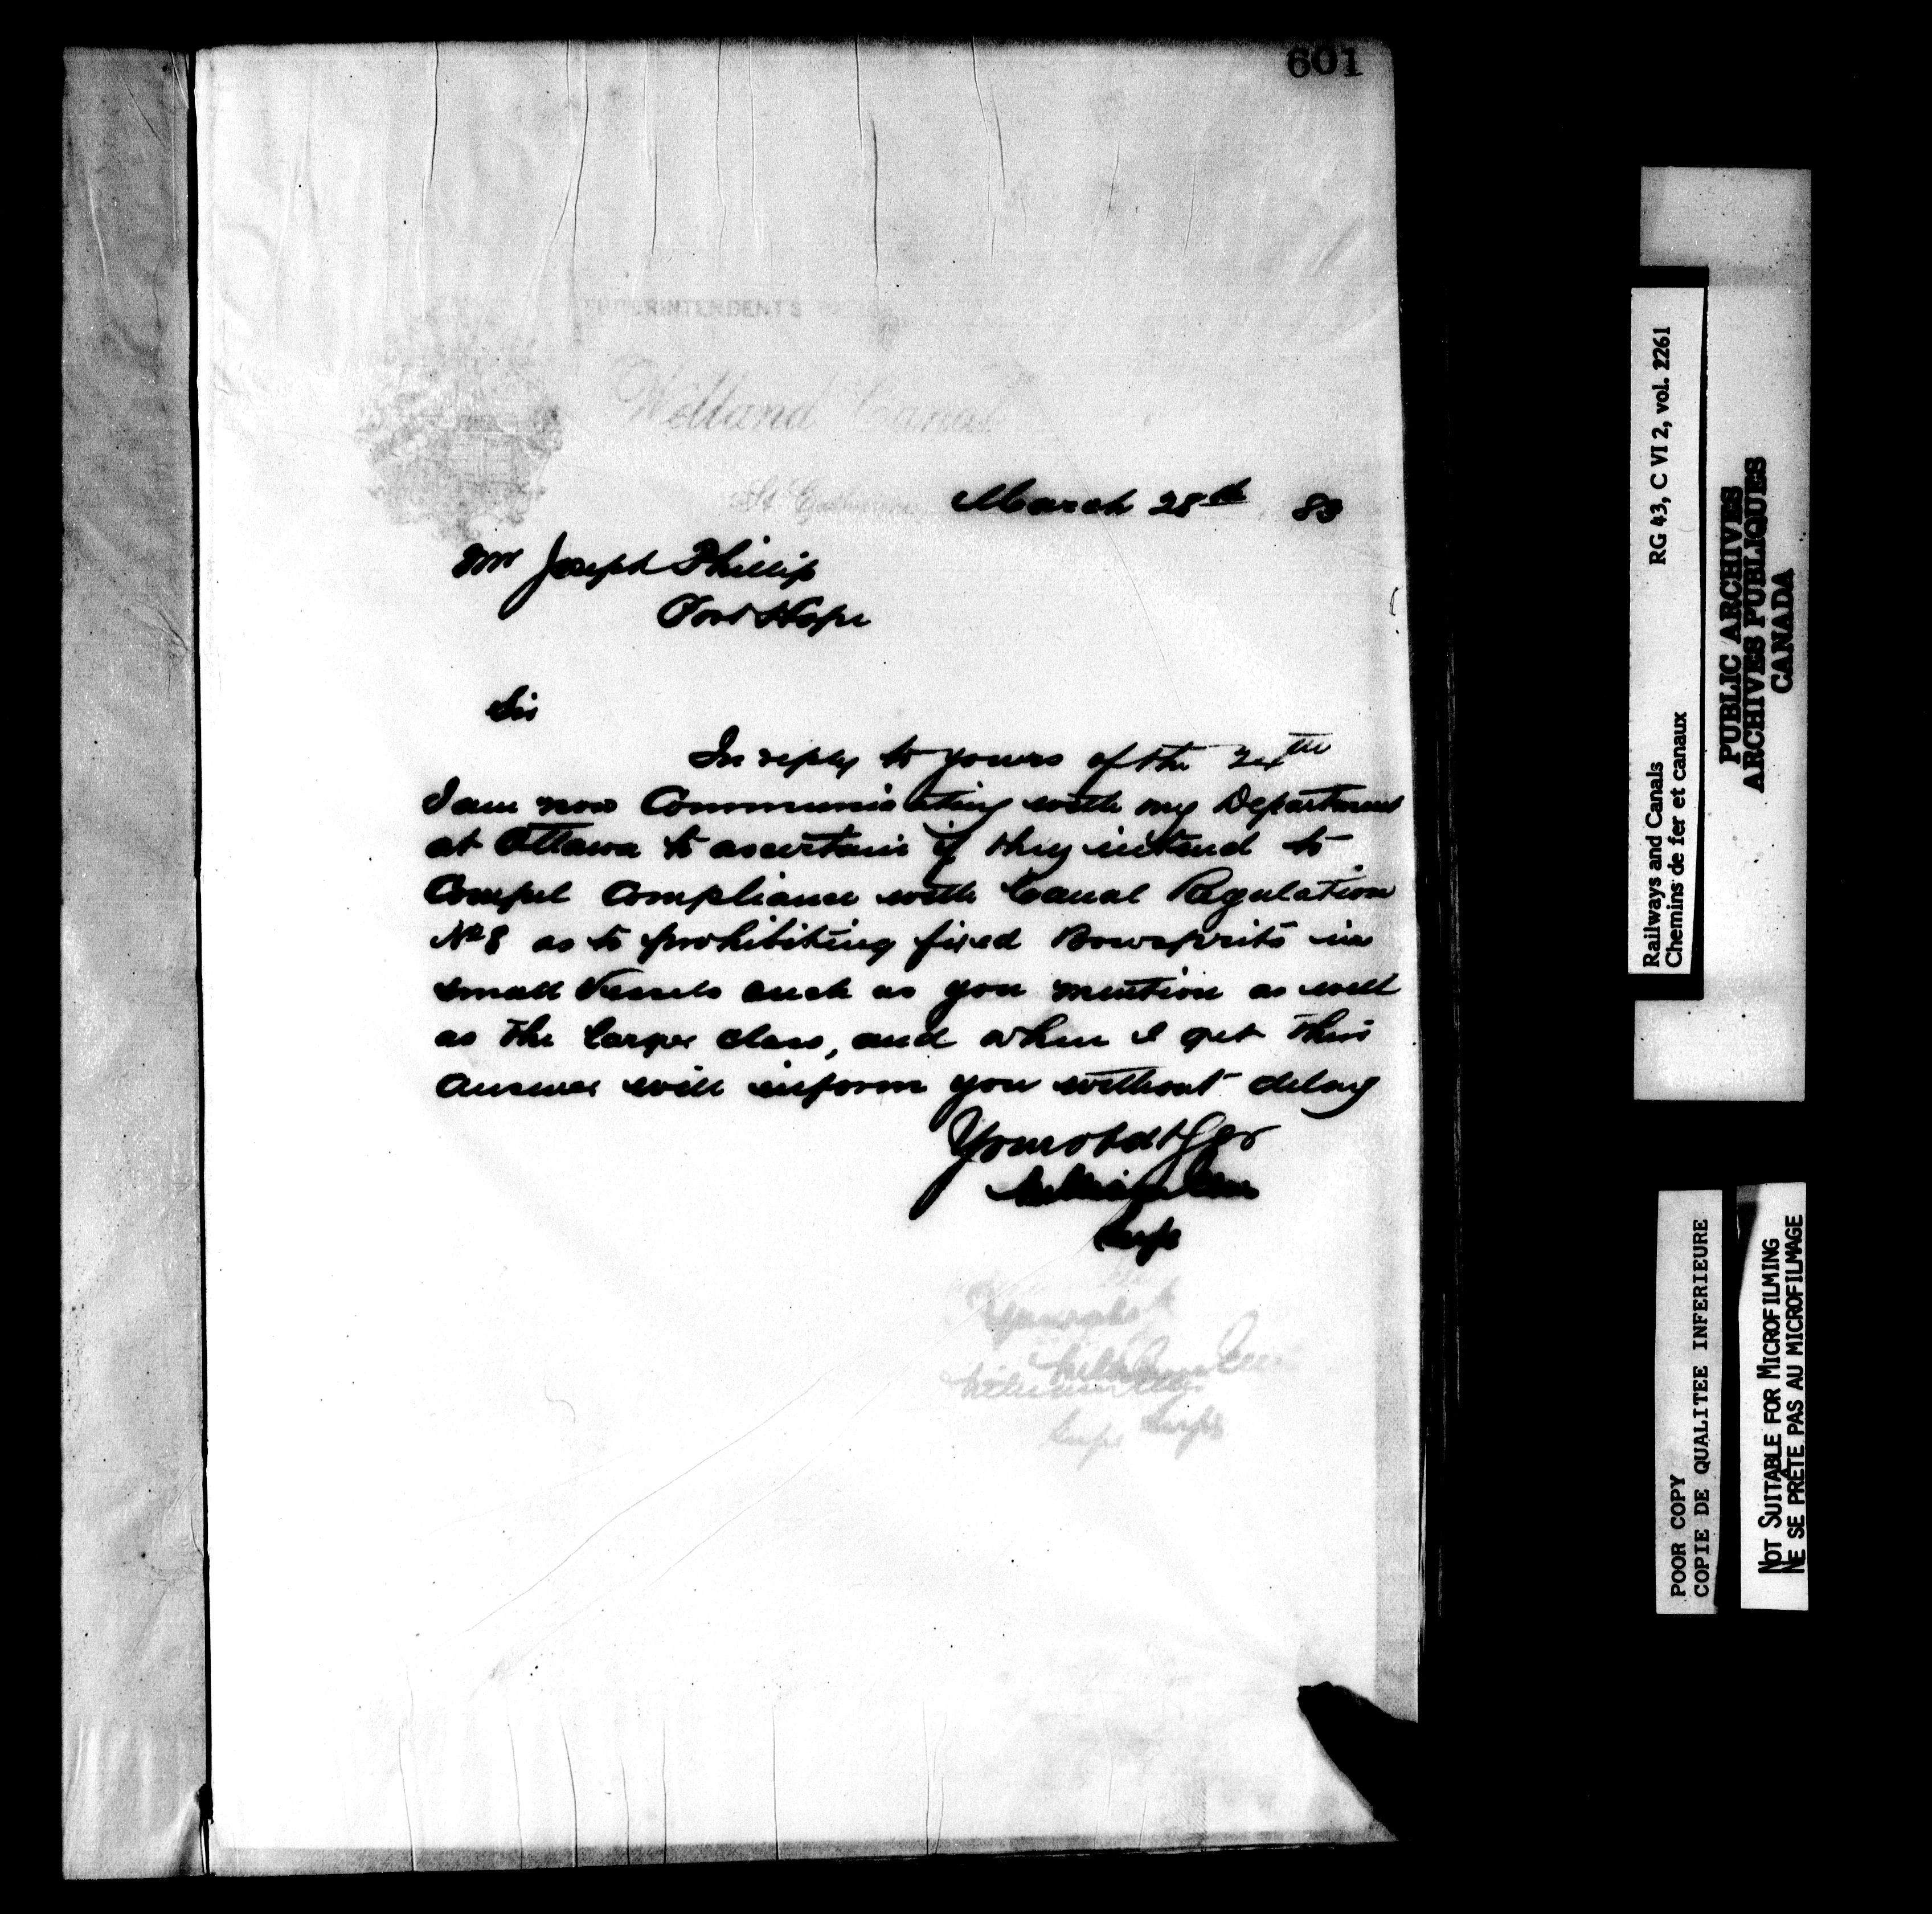 601
SUPERINTENDENT'S OFFICE
Welland Canal
St Catharines March 28th 83
Mr Joseph Phillip
Port Hope
Sir
In reply to yours of the 24th
I am now Communicating with my Department
at Ottawa to ascertain if they intend to
Compel Compliance with Canal Regulation
No 8 as to prohibiting fixed Bowsprits in
small Vessels such as you mention as well
as the larger class, and when I get this
answer will inform you without delay
Your obdt Ser
William Ellis
Supt
Your obdt
William Ellis
William Ellis
Supt Supt
RG 43, C VI 2, vol. 2261
Railways and Canals
Chemins de fer et canaux
PUBLIC ARCHIVES
ARCHIVES PUBLIQUES
CANADA
POOR COPY
COPIE DE QUALITEE INFERIEURE
NOT SUITABLE FOR MICROFILMING
NE SE PRÊTE PAS AU MICROFILMAGE